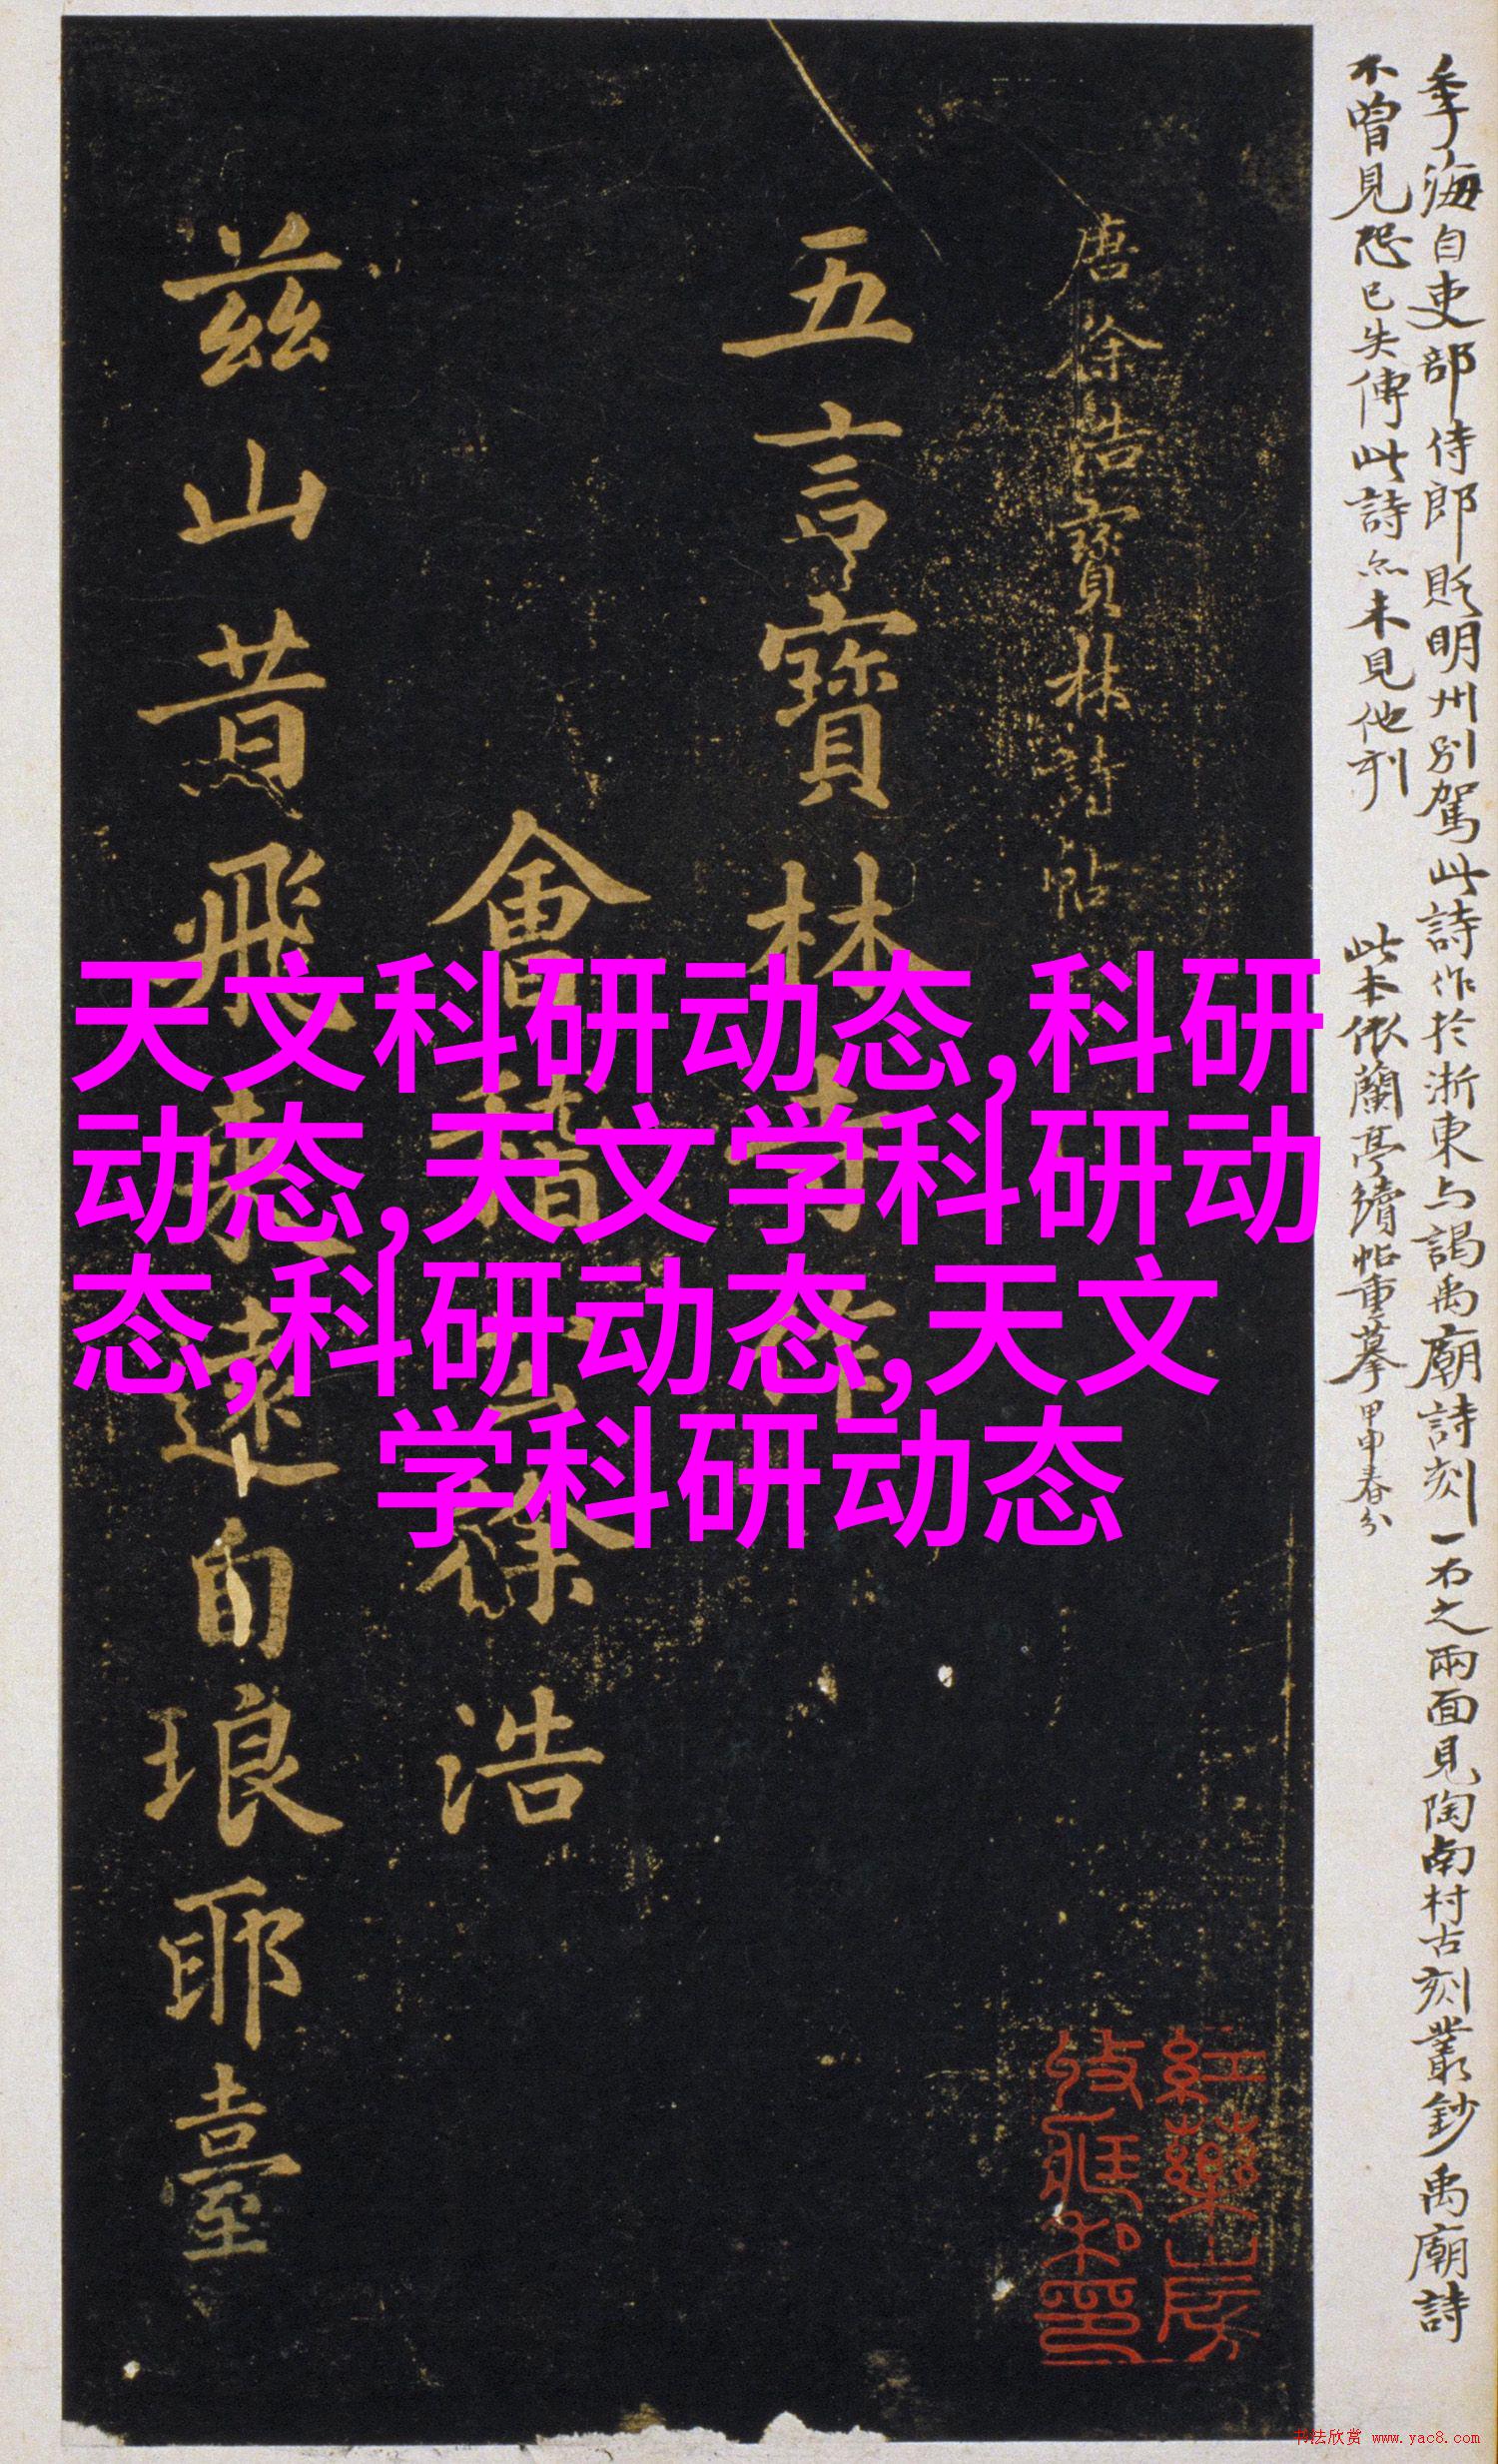 季海自吏部侍郎貶明州别駕此詩作於浙東与謁禹廟詩刻一石之兩面見陶南村古刻叢鈔禹廟詩
不曾見恐已失傳此詩亦未見他刻 此本依蘭亭續帖重摹甲申春分
唐徐浩寶林詩帖
五言寶林寺作
會稽公徐浩
兹山昔飛来遠自琅耶臺
紅藥山房
收藏私印
天文科研动态,科研
动态,天文学科研动
态,科研动态,天文
学科研动态
书法欣赏 www.yac8.com